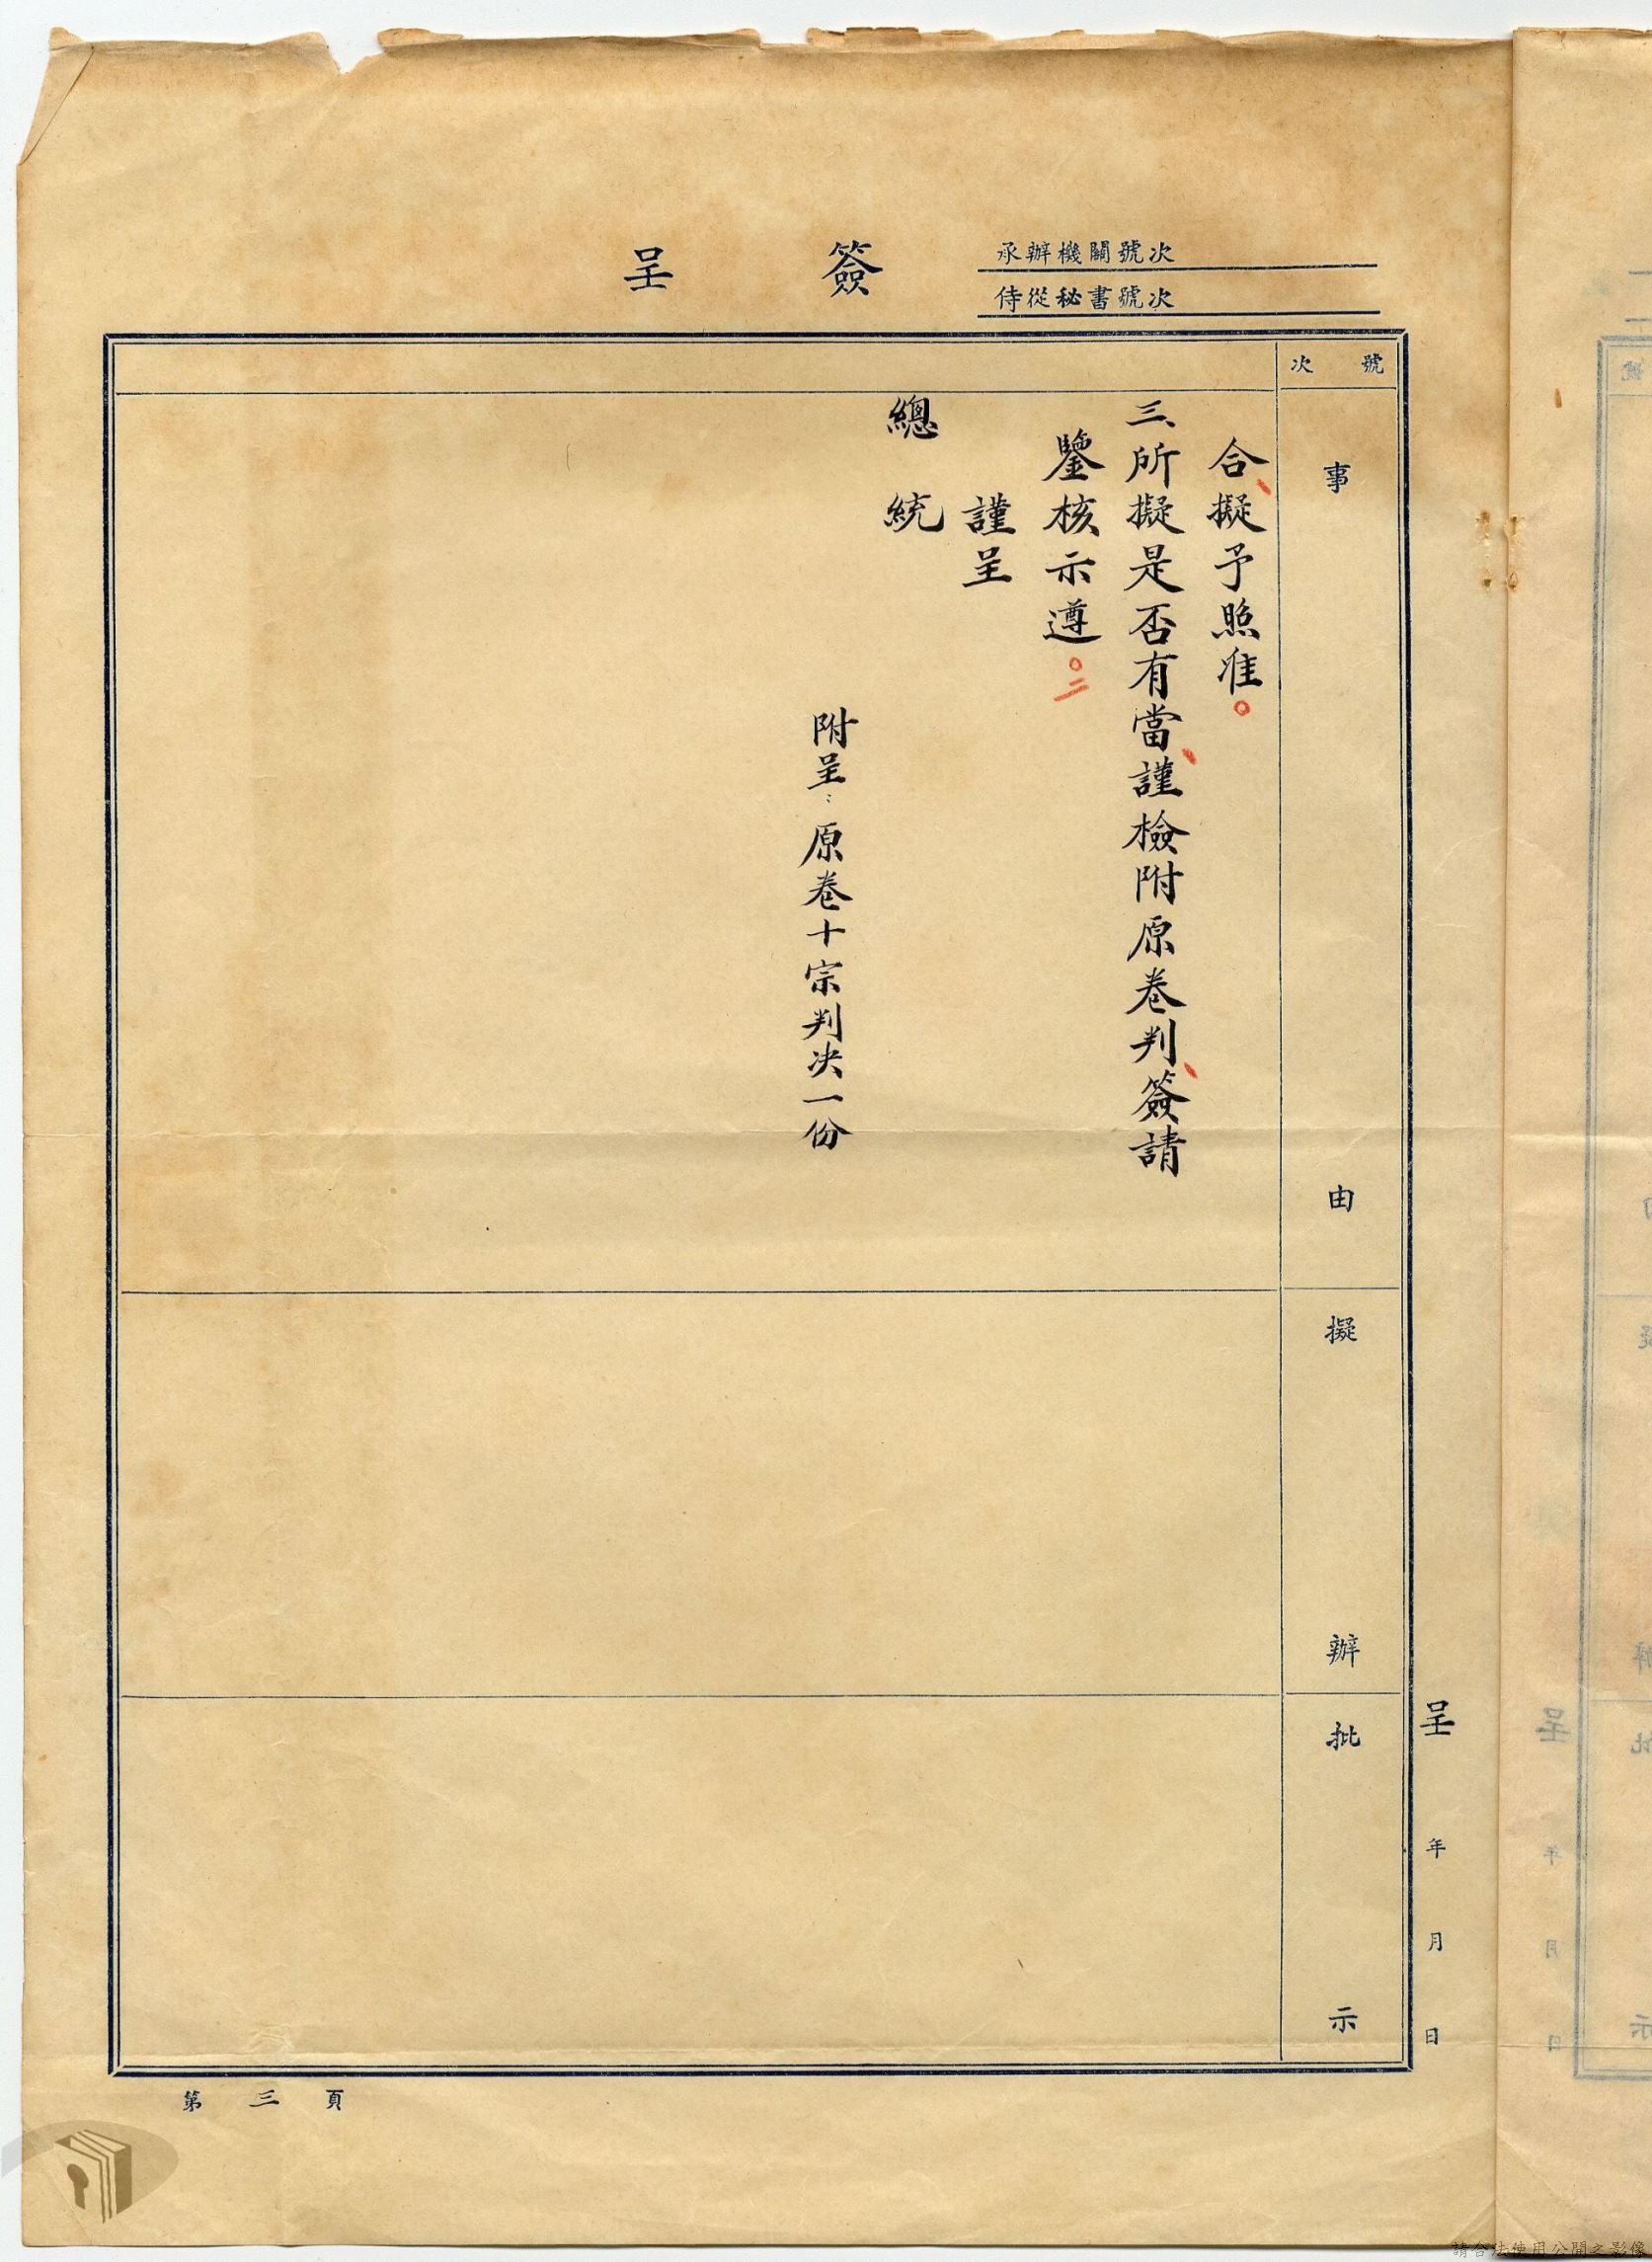 承辦機關號次
侍從秘書號次
簽呈
號次
事由
擬辦
批示
呈 年 月 日
合、擬予照准。
三、所擬是否有當、謹檢附原卷判、簽請
鑒核示遵。
謹呈
總統
附呈：原卷十宗判决一份
第三頁
請合法使用公開之影像